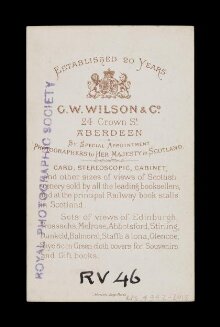 ESTABLISHED 20 YEARS
G. W. WILSON & Co.
24 Crown St.
ABERDEEN
BY SPECIAL APPOINTMENT
PHOTOGRAPHERS TO HER MAJESTY IN SCOTLAND
CARD, STEREOSCOPIC, CABINET,
and other sizes of views of Scottish
Scenery sold by all the leading booksellers,
and at the principal Railway book stalls
in Scotland
Sets of views of Edinburgh,
Trossachs, Melrose, Abbotsford, Stirling,
Dunkeld, Balmoral, Staffa & Iona, Glencoe,
in Green cloth covers for Souvenirs
and Gift books.
ROYAL PHOTOGRAPHIC SOCIETY
RV 46